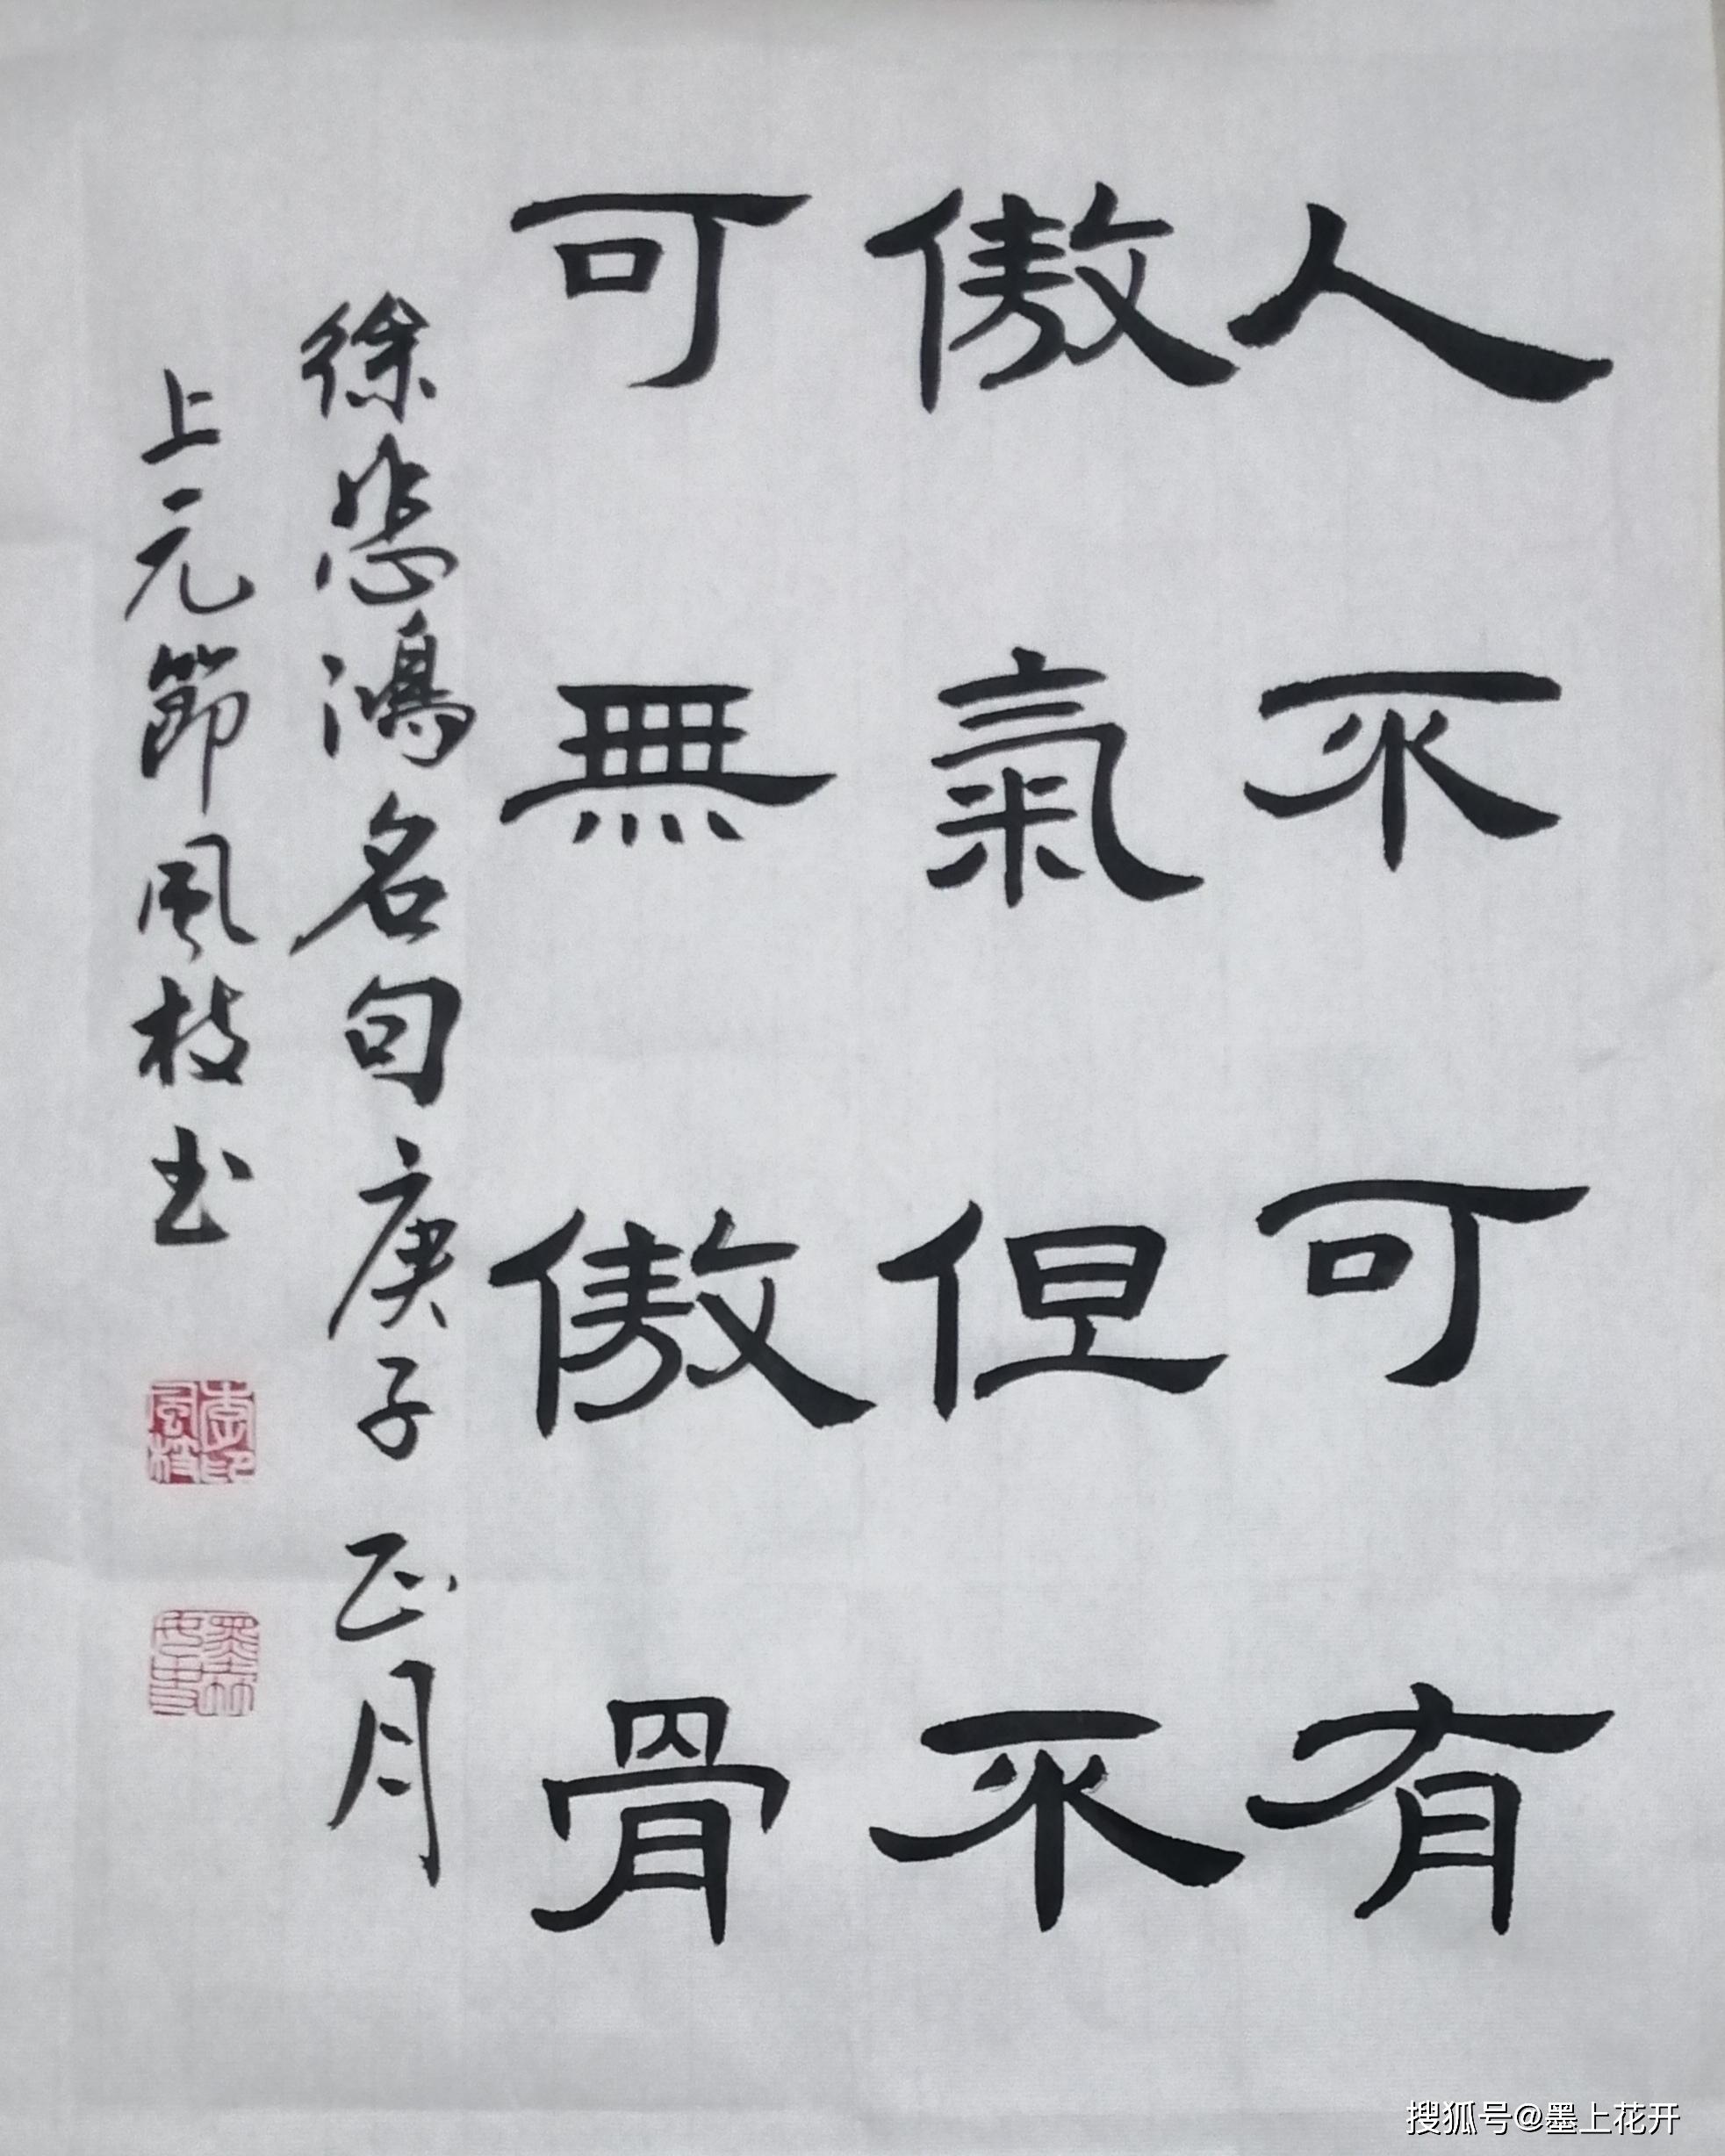 人不可有
傲氣但不
可無傲骨
徐悲鴻名句庚子正月
上元節風枝书
搜狐号@墨上花开